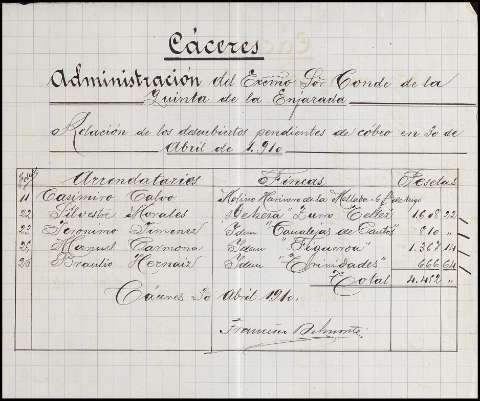 Cáceres
Administración del Excmo Sor Conde de la
Quinta de la Enjarada
Relación de los descubiertos pendientes de cobro en 30 de
Abril de 1.910.
Arrendatarios Fincas Pesetas
11 Casimiro Calvo Molino Harinero de la de trigo
22 Silvestre Morales Dehesa "Zurro Teller" 1608 22
23 Jeronimo Jimenez Idem "Canalejas de 810 "
25 Manuel Carmona Idem 1.367 14
26 Braulio Hernaiz Idem "Trinidades" 666 64
Total 4.452 "
Cáceres 30 Abril 1910.
Francisco Belmonte